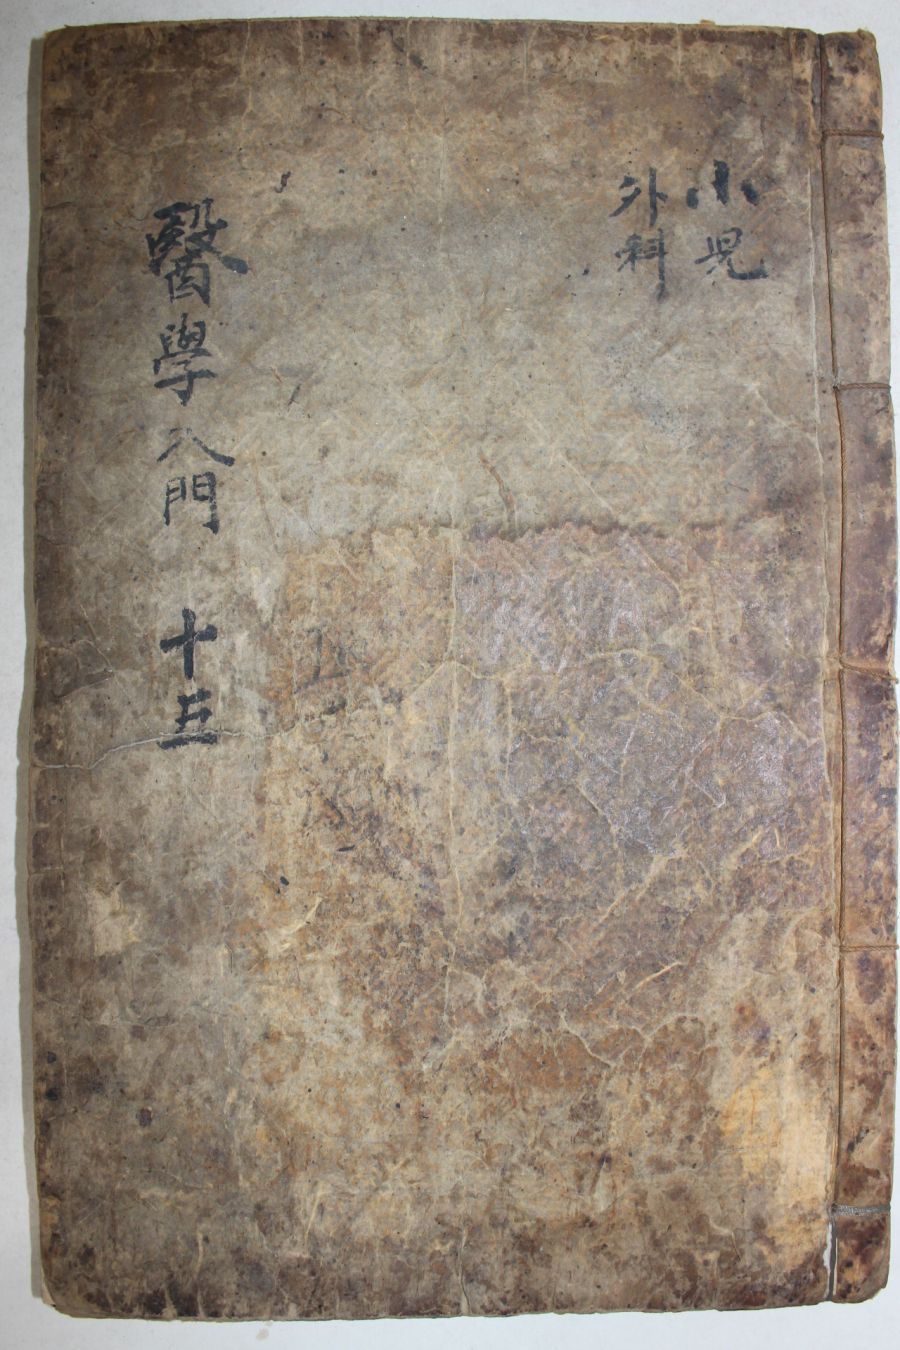 小児
外科
醫學入門 十五